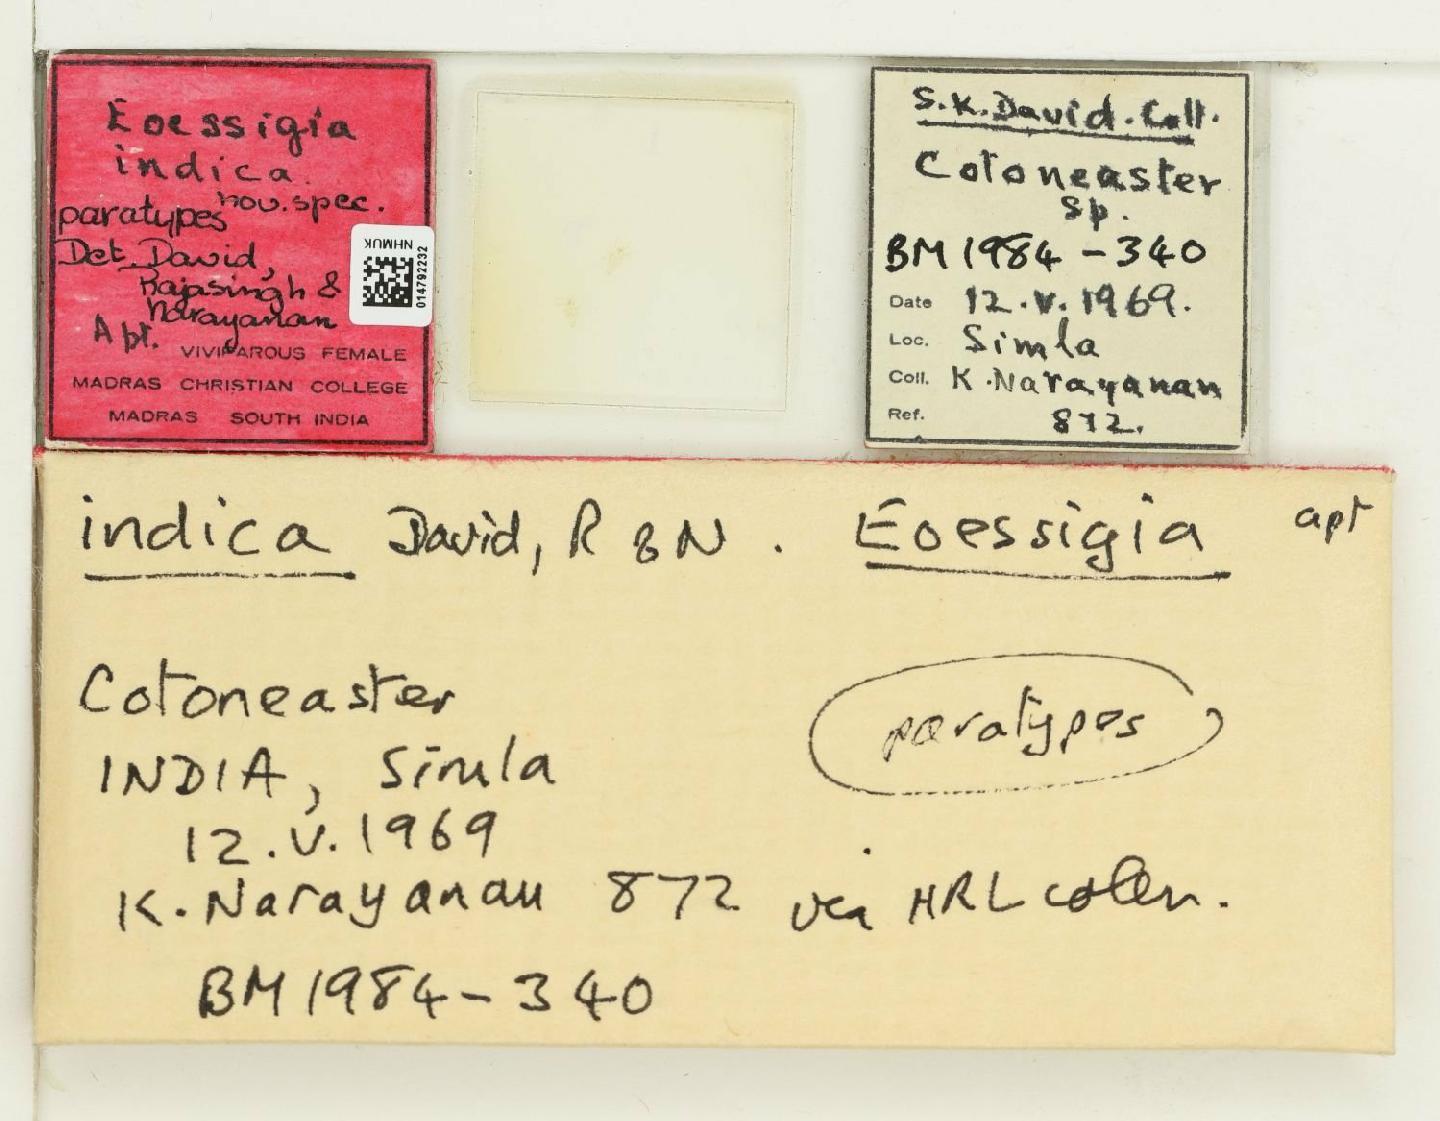 Eoessigia
indica
nov. spec.
paratypes
Det. David,
Rajasingh &
Narayanan
Apt.
VIVIPAROUS FEMALE
MADRAS CHRISTIAN COLLEGE
MADRAS SOUTH INDIA
NHMUK
014792232
S.K.David.Coll.
Cotoneaster
Sp.
BM 1984-340
Date 12.V.1969.
Loc. Simla
Coll. K.Narayanan
Ref. 872.
indica David, R & N. Eoessigia apt
Cotoneaster
paratypes
INDIA, Simla
12.V.1969
K.Narayanan 872 via HRL colln.
BM 1984-340